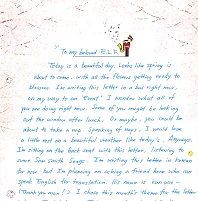 "To my beloved E.L.F
Today is a beautiful day. Looks like spring is
about to come, with all the flowers getting ready to
blossom. I'm writing this letter in a bus right now,
on my way to an 'Event'. I wonder what all of
you are doing right now. Some of you might be looking
out the window after lunch. Or maybe, you could be
about to take a nap. Speaking of naps, I would love
a little rest on a beautiful weather like today's. Anyways,
I'm sitting on the back seat with this letter, listening to
some Sam Smith Songs. I'm writing this letter in Korean
for now, but I'm planning on asking a friend here who can
speak English for translation. His name is
(Thank you man!) I chose this month's theme for the letter